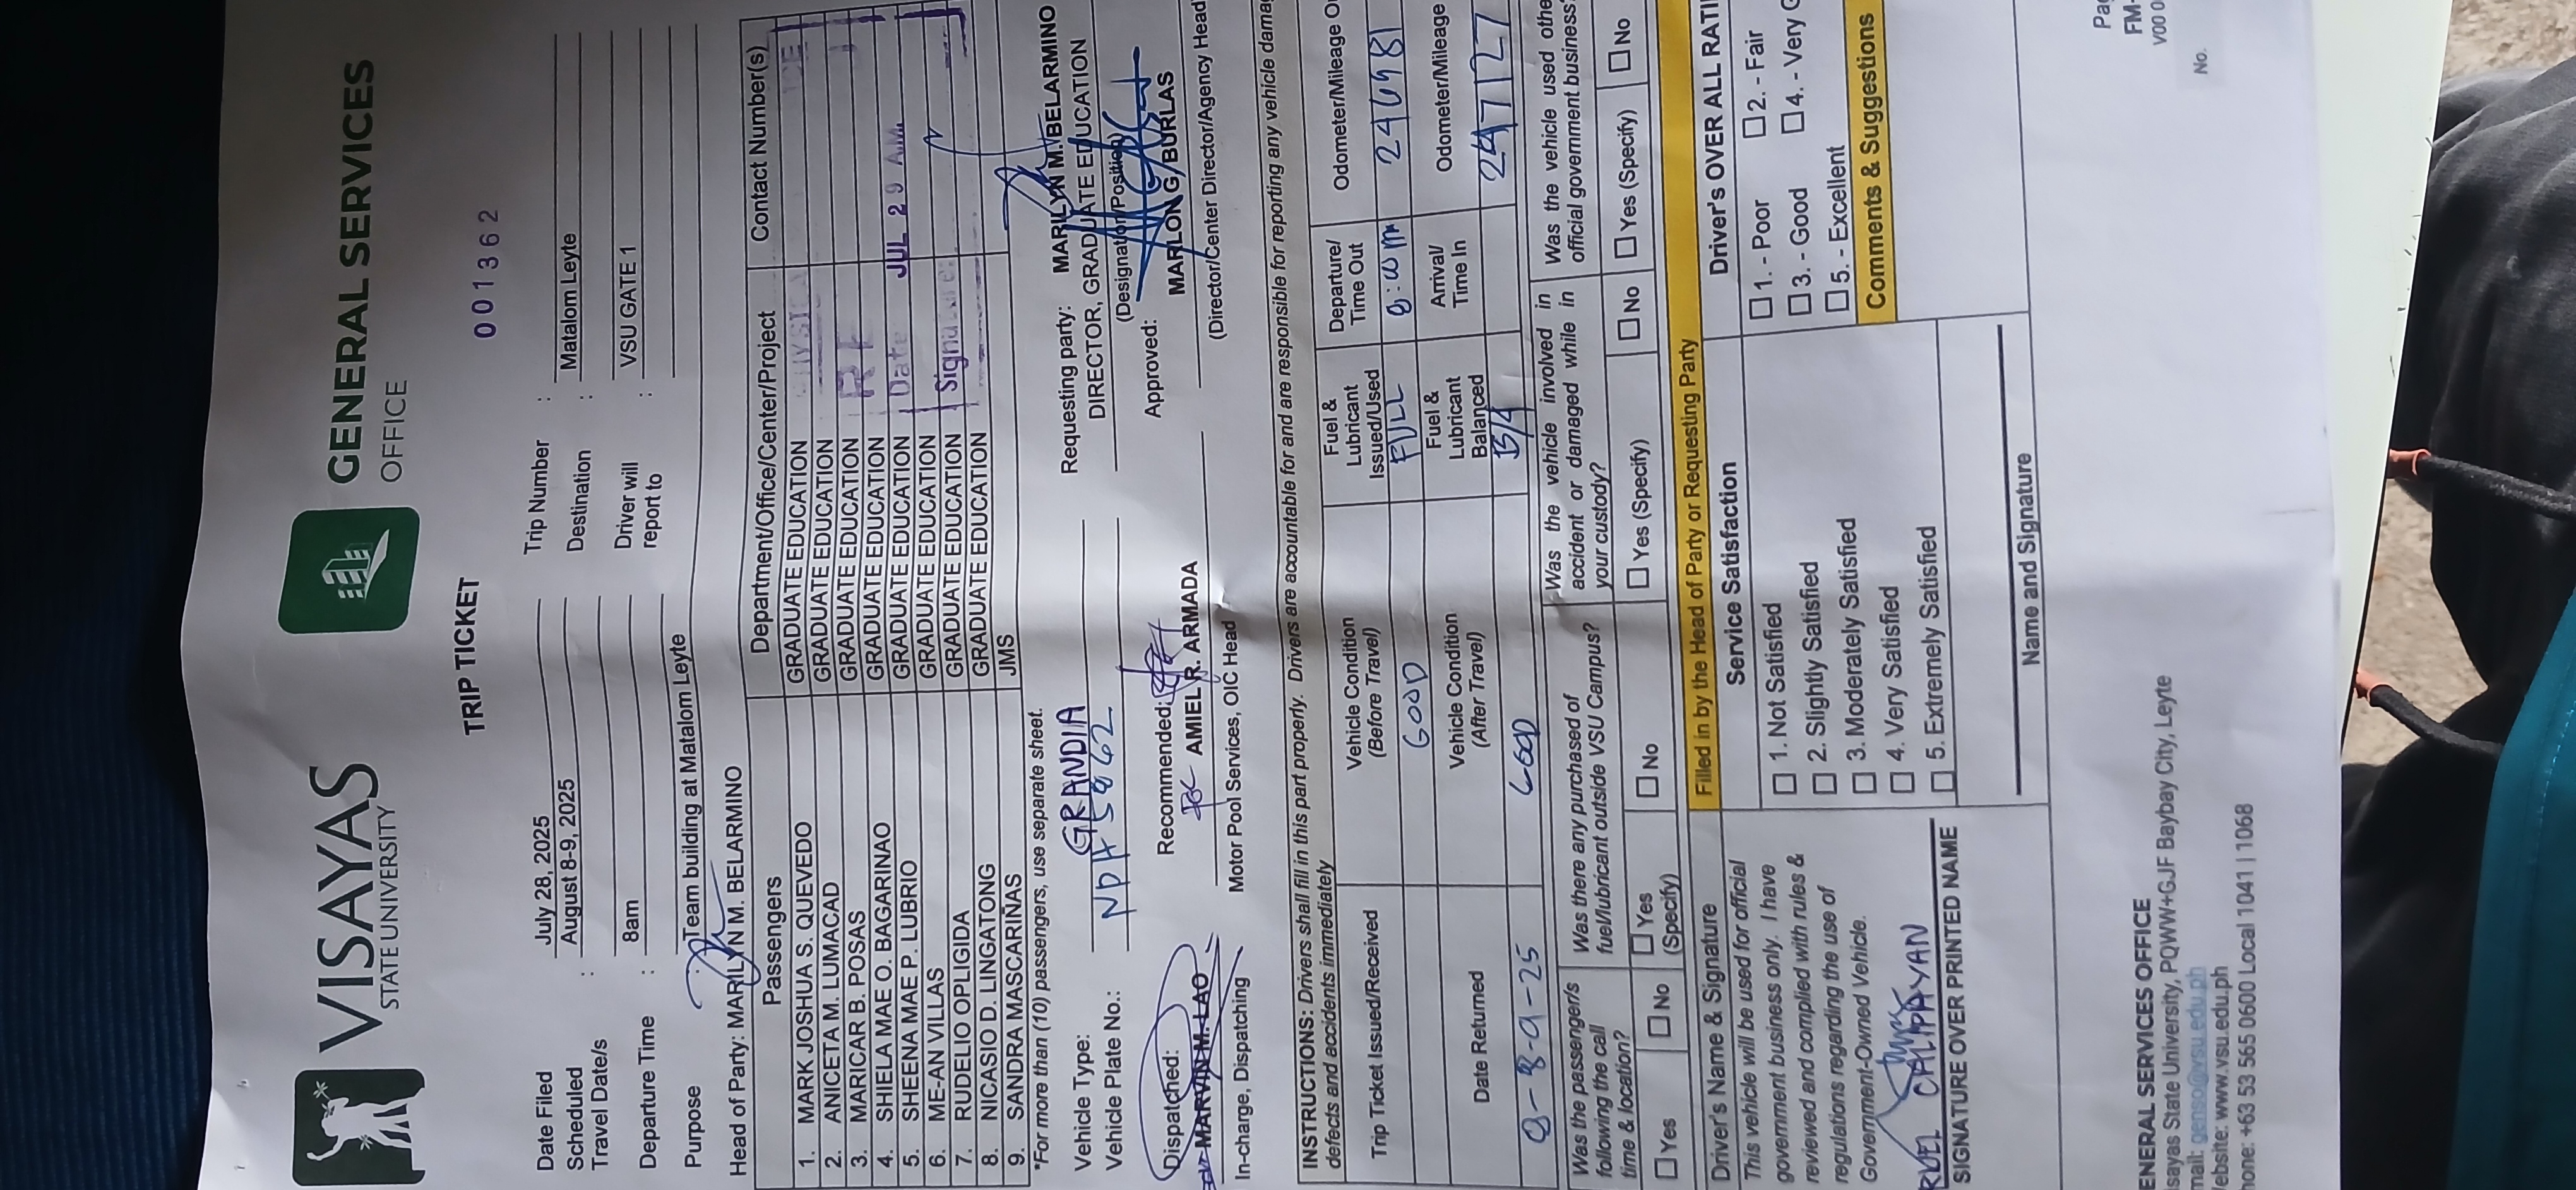 VISAYAS
STATE UNIVERSITY
GENERAL SERVICES
OFFICE
001362
TRIP TICKET
Date Filed July 28, 2025
Trip Number :
Scheduled Travel Date/s : August 8-9, 2025
Destination : Matalom Leyte
Departure Time : 8am
Driver will report to : VSU GATE 1
Purpose : Team building at Matalom Leyte
Head of Party: MARILYN M. BELARMINO
Passengers Department/Office/Center/Project Contact Number(s)
1. MARK JOSHUA S. QUEVEDO GRADUATE EDUCATION
2. ANICETA M. LUMACAD GRADUATE EDUCATION
3. MARICAR B. POSAS GRADUATE EDUCATION
4. SHIELA MAE O. BAGARINAO GRADUATE EDUCATION
5. SHEENA MAE P. LUBRIO GRADUATE EDUCATION
6. ME-AN VILLAS GRADUATE EDUCATION
7. RUDELIO OPLIGIDA GRADUATE EDUCATION
8. NICASIO D. LINGATONG GRADUATE EDUCATION
9. SANDRA MASCARIÑAS JMS
Date JUL 29 AM
Signature
*For more than (10) passengers, use separate sheet.
Vehicle Type: GRANDIA
Vehicle Plate No.:
Requesting party: MARILYN M. BELARMINO
DIRECTOR, GRADUATE EDUCATION
(Designation/Position)
Dispatched:
MARVIN M. LAO
In-charge, Dispatching
Recommended:
AMIEL R. ARMADA
Motor Pool Services, OIC Head
Approved:
MARLON G. BURLAS
(Director/Center Director/Agency Head
INSTRUCTIONS: Drivers shall fill in this part properly. Drivers are accountable for and are responsible for reporting any vehicle
defects and accidents immediately
Trip Ticket Issued/Received
Vehicle Condition
(Before Travel)
Fuel &
Lubricant
Issued/Used
Departure/
Time Out
Odometer/Mileage
GOOD FULL
Date Returned
Vehicle Condition
(After Travel)
Fuel &
Lubricant
Balanced
Arrival/
Time In
Odometer/Mileage
8-9-25 GOOD 247127
Was the passenger/s
following the call
time & location?
Was there any purchased of
fuel/lubricant outside VSU Campus?
Was the vehicle involved in
accident or damaged while in
your custody?
Was the vehicle used
official government business
☐ Yes ☐ No
☐ Yes (Specify) ☐ No
☐ Yes (Specify) ☐ No
☐ Yes (Specify) ☐ No
Driver's Name & Signature
This vehicle will be used for official
government business only. I have
reviewed and complied with rules &
regulations regarding the use of
Government-Owned Vehicle.
SIGNATURE OVER PRINTED NAME
Filled in by the Head of Party or Requesting Party
Service Satisfaction
☐ 1. Not Satisfied
☐ 2. Slightly Satisfied
☐ 3. Moderately Satisfied
☐ 4. Very Satisfied
☐ 5. Extremely Satisfied
Driver's OVER ALL
☐ 1. - Poor ☐ 2. - Fair
☐ 3. - Good ☐ 4. - Very
☐ 5. - Excellent
Comments & Suggestions
Name and Signature
ENERAL SERVICES OFFICE
isayas State University, PQWW+GJF Baybay City, Leyte
mail: genso@vsu.edu.ph
ebsite: www.vsu.edu.ph
hone: +63 53 565 0600 Local 1041 | 1068
FM-
V00
No.